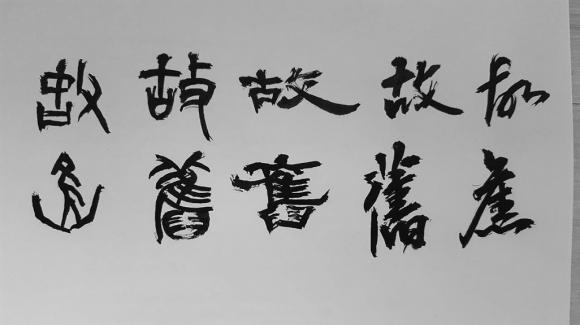 故故故故故
舊舊舊舊舊